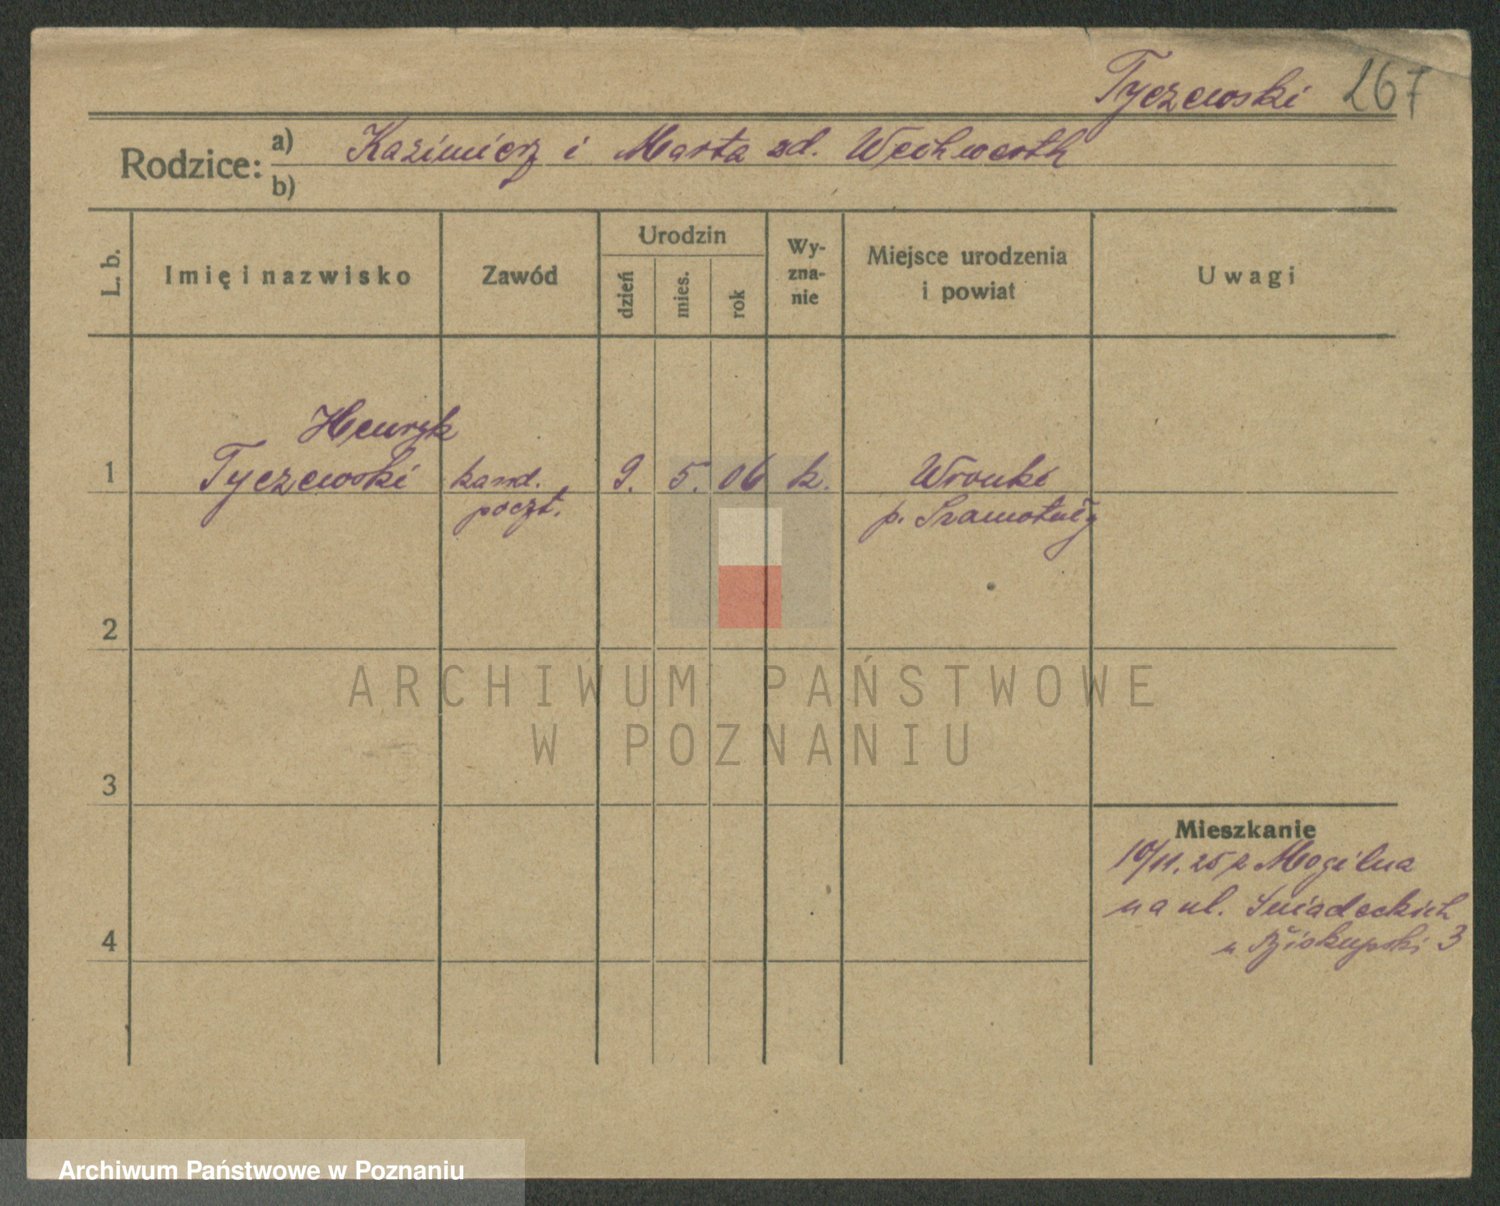 Tyczewski 267
Rodzice: a) Kazimierz i Marta zd.
b)
L. b. Imię i nazwisko Zawód Urodzin dzień mies. rok Wy-zna-nie Miejsce urodzenia i powiat Uwagi
Henryk
1 Tyczewski kand. 9. 5. 06 k. Wronki
poczt. p. Szamotuły
2
ARCHIWUM PAŃSTWOWE
W POZNANIU
3
Mieszkanie
10/11. 25 z Mogilna
na ul. Śniadeckich
4 u Biskupski 3
Archiwum Państwowe w Poznaniu